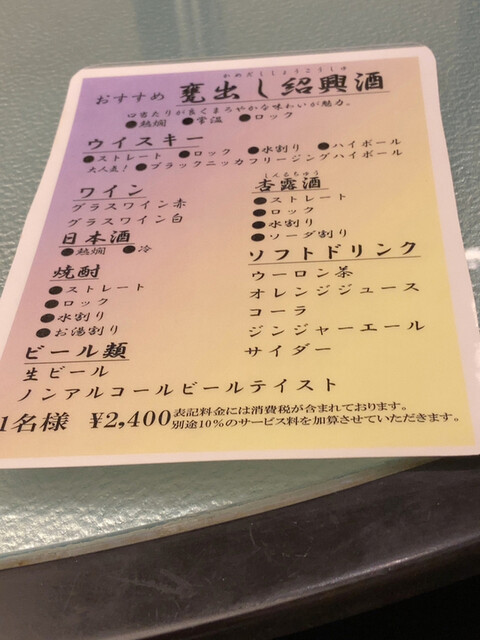 かめだししょうこうしゅ
おすすめ 甕出し紹興酒
口当たりが良くまろやかな味わいが魅力。
●熱燗 ●常温 ●ロック
ウイスキー
●ストレート ●ロック ●水割り ●ハイボール
大人気！●ブラックニッカフリージングハイボール
ワイン
グラスワイン赤
グラスワイン白
日本酒
●熱燗 ●冷
焼酎
●ストレート
●ロック
●水割り
●お湯割り
ビール類
生ビール
ノンアルコールビールテイスト
しんるちゅう
杏露酒
●ストレート
●ロック
●水割り
●ソーダ割り
ソフトドリンク
ウーロン茶
オレンジジュース
コーラ
ジンジャーエール
サイダー
1名様 ¥2,400 表記料金には消費税が含まれております。
別途10%のサービス料を加算させていただきます。